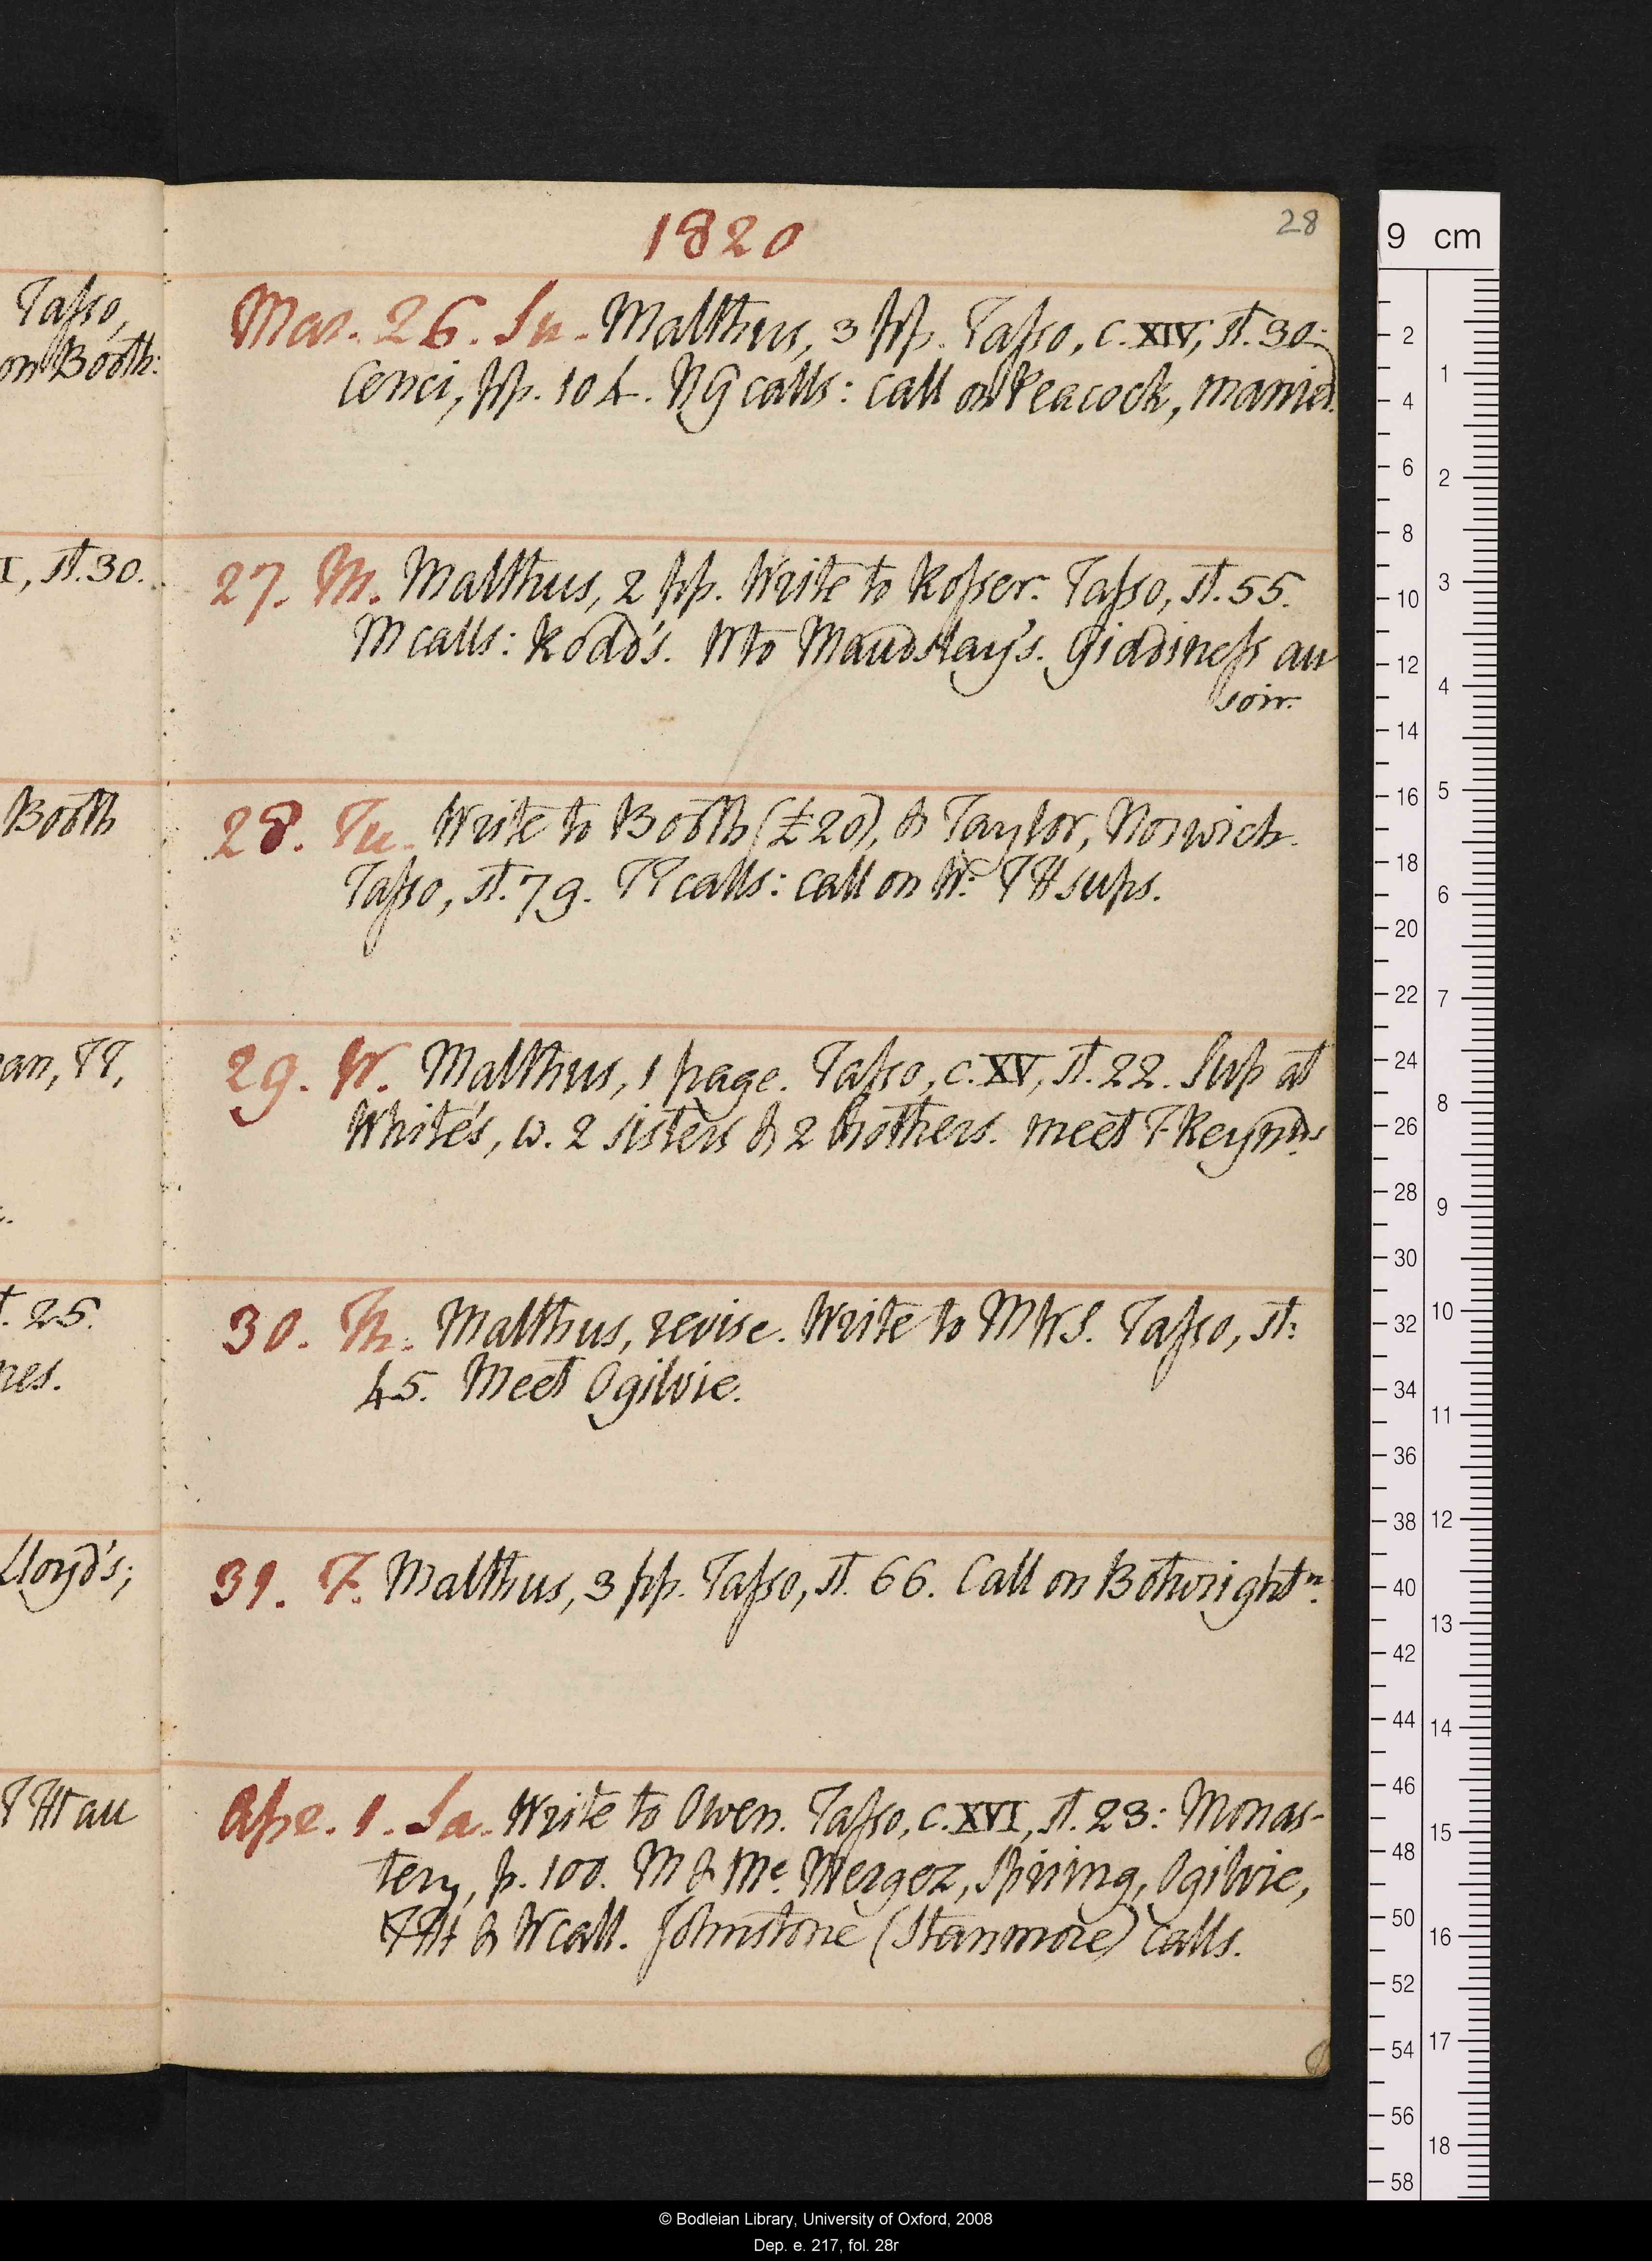 1820
28
Tasso,
on Booth:
I, st. 30.
Booth
an, TT,
25.
nes.
Lloyd's;
au
Mar. 26. Su. Malthus, 3 pp. Tasso, c. XIV, st. 30:
Cenci, pp. 104. NG calls: call on Peacock, married.
27. M. Malthus, 2 pp. Write to Rosser. Tasso, st. 55.
M calls: Rodd's. W to Maudslay's. Giddiness au
soir.
28. Tu. Write to Booth (£20), & Taylor, Norwich.
Tasso, st. 79. TT calls: call on W: TH sups.
29. W. Malthus, 1 page. Tasso, c. XV, st. 22. Sup at
White's, w. 2 sisters & 2 brothers. meet F Reynds
30. Th. Malthus, revise. Write to MWS. Tasso, st.
45. Meet Ogilvie.
31. F. Malthus, 3 pp. Tasso, st. 66. Call on Botwrightn.
Apr. 1. Sa. Write to Owen. Tasso, c. XVI, st. 23: Monas-
tery, p. 100. M & Me. Mergez, Spiring, Ogilvie,
& W call. Johnstone (Stanmore) calls.
9 cm
2
4
6
8
10
12
14
16
18
20
22
24
26
28
30
32
34
36
38
40
42
44
46
48
50
52
54
56
58
1
2
3
4
5
6
7
8
9
10
11
12
13
14
15
16
17
18
© Bodleian Library, University of Oxford, 2008
Dep. e. 217, fol. 28r